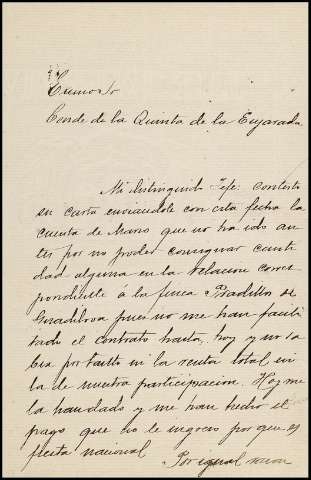 Exmo Sr
Conde de la Quinta de la Enjarada
Mi distinguido Jefe: contesto
su carta enviandole con esta fecha la
cuenta de Marzo que no ha ido an
tes por no poder consignar canti
dad alguna en la relacion corres
pondiente á la finca Pradillos de
pues no me han facili
tado el contrato hasta hoy y no sa
bia por tanto ni la renta total ni
la de nuestra participacion. Hoy me
la han dado y me han hecho el
pago que no le ingreso por que es
fiesta nacional
Por igual razon